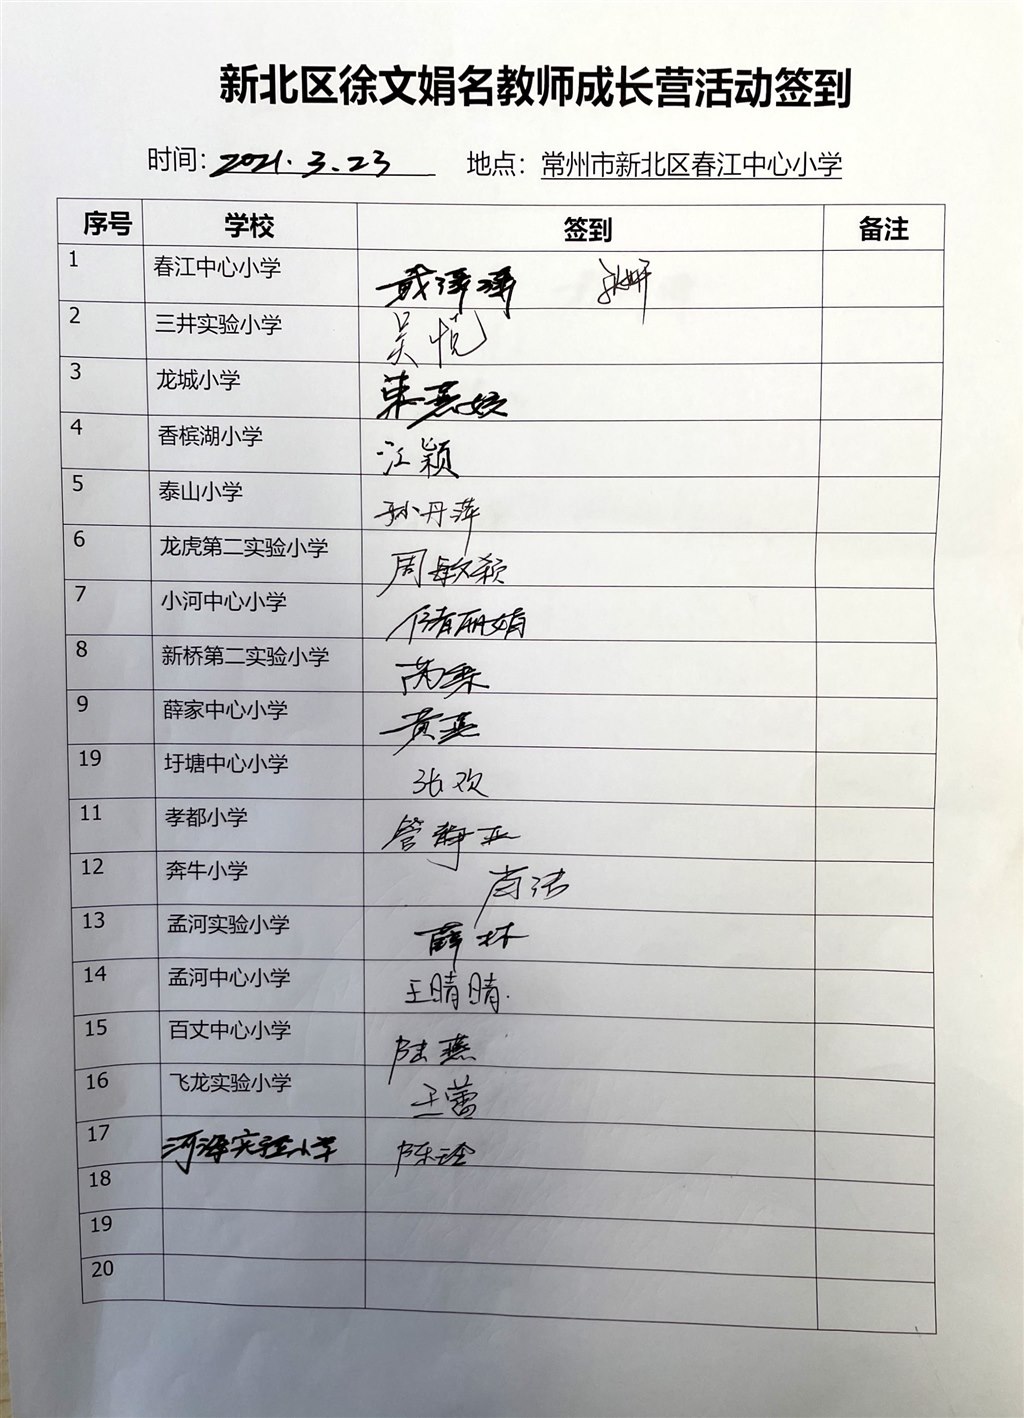 新北区徐文娟名教师成长营活动签到
时间：2021.3.23 地点：常州市新北区春江中心小学
序号 学校 签到 备注
1 春江中心小学
2 三井实验小学 吴悦
3 龙城小学
4 香槟湖小学 江颖
5 泰山小学 孙丹萍
6 龙虎第二实验小学 周敏颖
7 小河中心小学 储丽娟
8 新桥第二实验小学
9 薛家中心小学 黄燕
19 圩塘中心小学 张欢
11 孝都小学 管静亚
12 奔牛小学 肖洁
13 孟河实验小学 薛林
14 孟河中心小学 王晴晴.
15 百丈中心小学 陆燕
16 飞龙实验小学 王蕾
17 河海实验小学
18
19
20